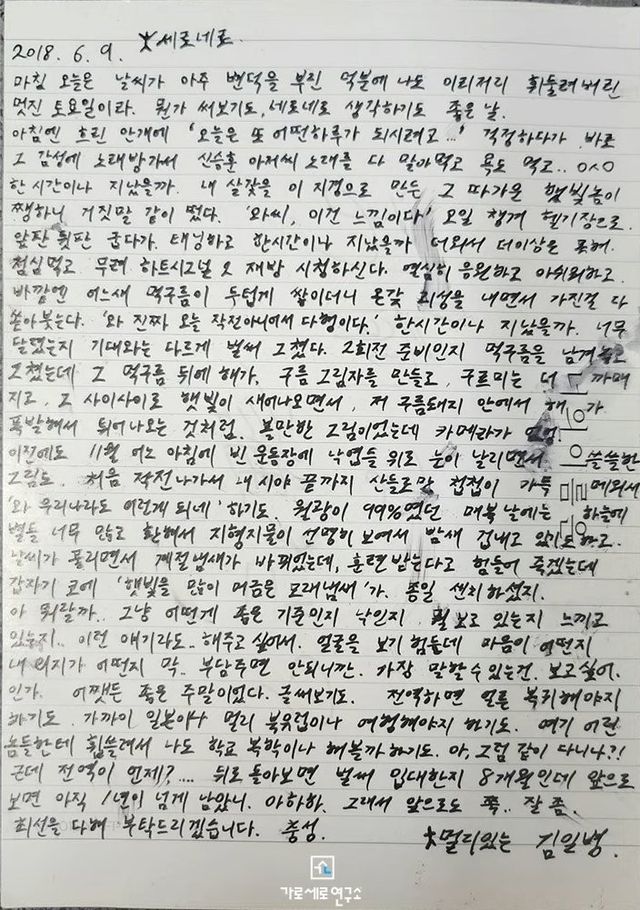 2018. 6. 9. 大세로네로
마침 오늘은 날씨가 아주 변덕을 부린 덕분에 나도 이리저리 휘둘려버린
멋진 토요일이라. 뭔가 써보기도, 네로네로 생각하기도 좋은 날.
아침엔 흐린 안개에 '오늘은 또 어떤하루가 되시려고...' 걱정하다가 바로
그 감성에 노래방가서 신승훈 아저씨 노래를 다 말아먹고 욕도 먹고.. ㅇㅅㅇ
한시간이나 지났을까. 내 살갗을 이 지경으로 만든 그 따가운 햇빛놈이
쨍하니 거짓말 같이 떴다. '와씨, 이건 느낌이다.' 오일 챙겨 헬기장으로.
앞판 뒷판 굽다가. 태닝하고 한시간이나 지났을까 더워서 더이상은 못해.
점심먹고 무려 하트시그널2 재방 시청하신다. 열심히 응원하고 아쉬워하고.
바깥엔 어느새 먹구름이 두텁게 쌓이더니 온갖 내면서 가진걸 다
쏟아붓는다. '와 진짜 오늘 작전아니어서 다행이다.' 한시간이나 지났을까. 너무
달렸는지 기대와는 다르게 벌써 그쳤다. 2회전 준비인지 먹구름을 남겨놓고
그쳤는데 그 먹구름 뒤에 해가, 구름 그림자를 만들고, 구르미는 더 까매
지고, 그 사이사이로 햇빛이 새어나오면서, 저 구름돼지 안에서 해가
폭발해서 튀어나오는 것처럼. 볼만한 그림이었는데 카메라가
이전에도 11월 어느 아침에 빈 운동장에 낙엽들 위로 눈이 날리면서 쓸쓸한
그림도. 처음 작전나가서 내 시야 끝까지 산들로만 첩첩이 가득 메워서
'와 우리나라도 이렇게 되네' 하기도. 월광이 99%였던 매복날에는 하늘에
별들 너무 많고 환해서 지형지물이 선명히 보여서 밤새 겁내고 있기도하고.
날씨가 풀리면서 계절냄새가 바뀌었는데, 훈련받는다고 힘들어 죽겠는데
갑자기 코에 '햇빛을 많이 머금은 모래냄새'가. 종일 센치하셨지.
아 뭐랄까.. 그냥 어떻게 좋은 기준인지 낙인지 뭘 보고 있는지 느끼고
있는지.. 이런 얘기라도.. 해주고싶어서. 얼굴을 보기 힘든데 마음이 어떤지
내 의지가 어떤지 막.. 부담주면 안되니깐. 가장 말할수있는건. 보고싶어.
인가. 어쨋든 좋은 주말이었다. 글써보기도. 전역하면 얼른 복귀해야지
하기도. 가까이 일본이나 멀리 북유럽이나 여행해야지 하기도. 여기 어린
놈들한테 휩쓸려서 나도 학교 복학이나 해볼까하기도. 아, 그럼 같이 다니나?!
근데 전역이 언제?.... 뒤로 돌아보면 벌써 입대한지 8개월인데 앞으로
보면 아직 1년이 넘게 남았니. 아하하. 그래서 앞으로도 쭉.. 잘 좀.
최선을 다해 부탁드리겠습니다. 충성.
大멀리있는 김일병.
가로세로연구소